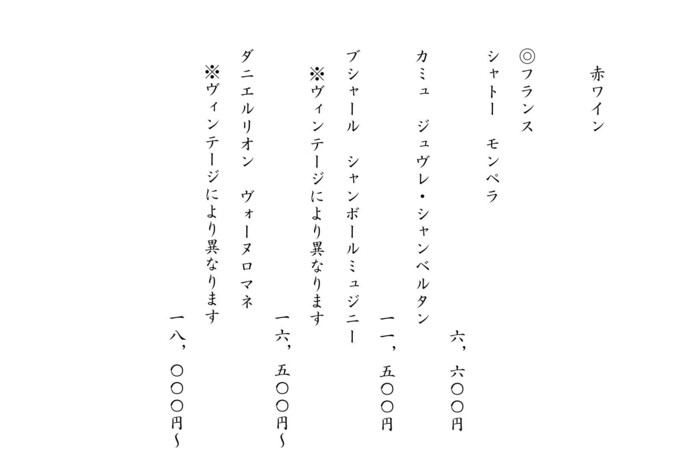 赤ワイン
◎フランス
シャトー　モンペラ
六，六〇〇円
カミュ　ジュヴレ・シャンベルタン
一一，五〇〇円
ブシャール　シャンボールミュジニー
※ヴィンテージにより異なります
一六，五〇〇円～
ダニエルリオン　ヴォーヌロマネ
※ヴィンテージにより異なります
一八，〇〇〇円～